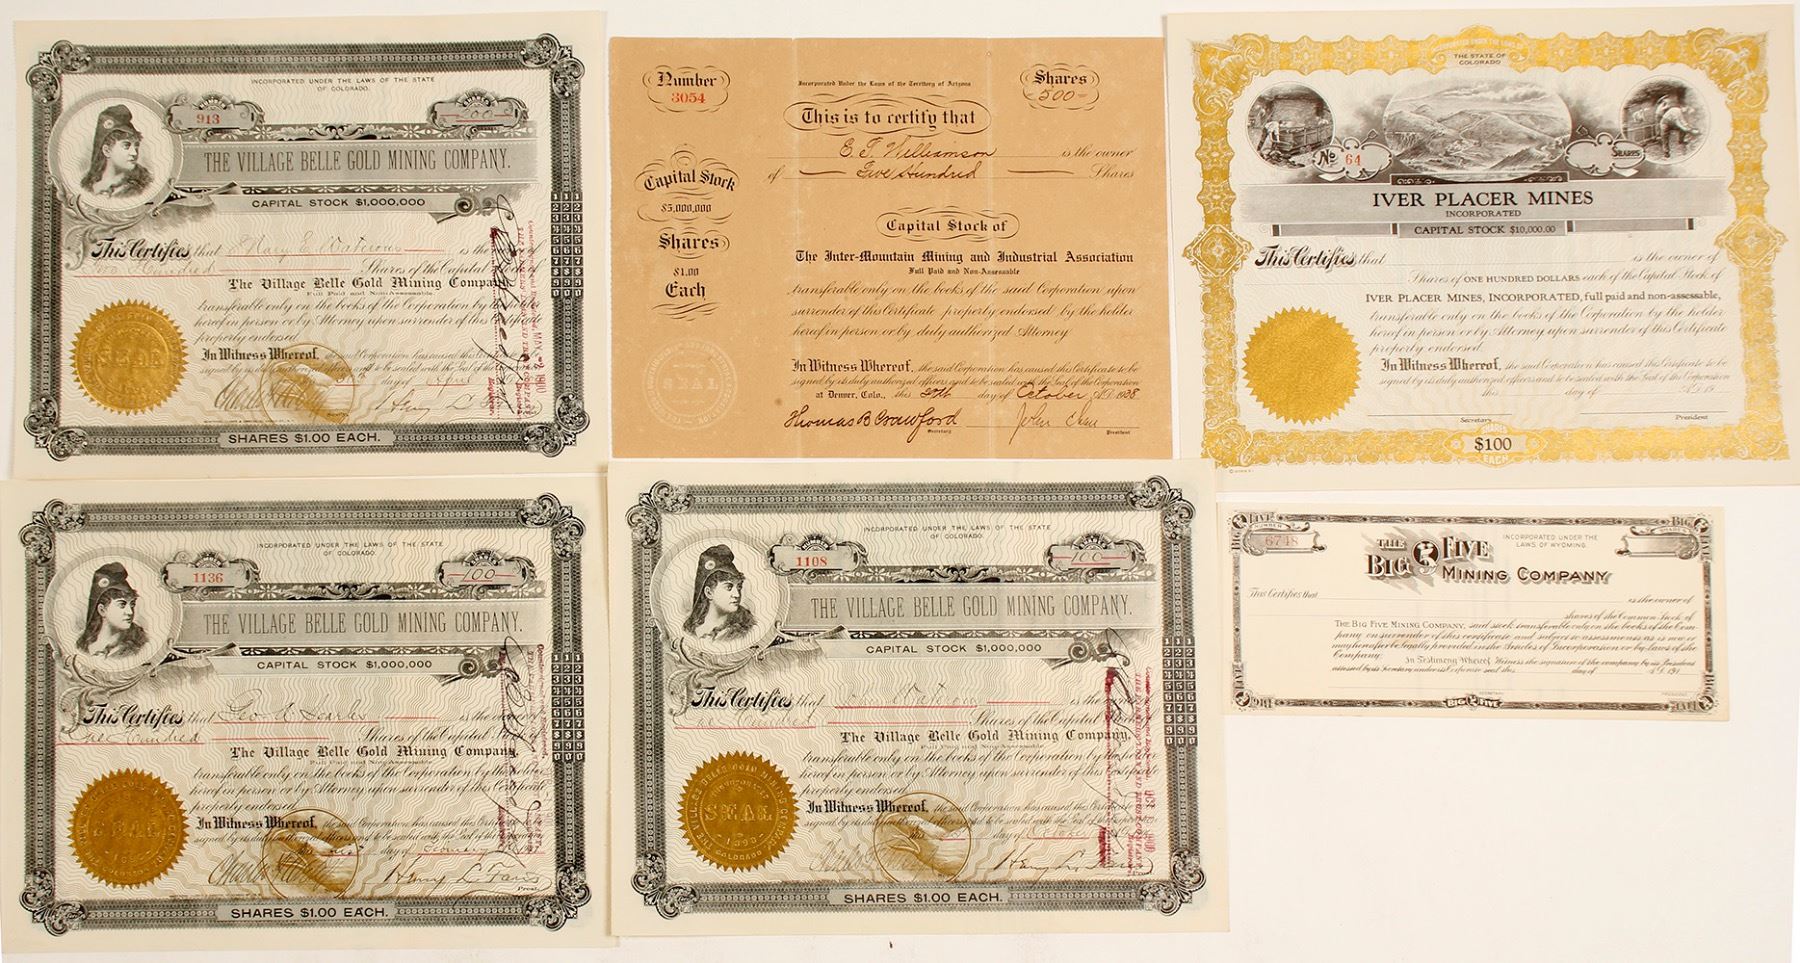 INCORPORATED UNDER THE LAWS OF THE STATE
OF COLORADO.
NUMBER
913
THE VILLAGE BELLE GOLD MINING COMPANY.
CAPITAL STOCK $1,000,000
This Certifies that Mary E. Watrous is the owner of
Hundred Shares of the Capital Stock of
The Village Belle Gold Mining Company
Full Paid and Non-Assessable
transferable only on the books of the Corporation by the holder
hereof in person or by Attorney upon surrender of this Certificate
properly endorsed.
In Witness Whereof, the said Corporation has caused this Certificate to be
signed by its duly authorized officers and to be sealed with the Seal of the Corporation
day of April
SEAL
SHARES $1.00 EACH.
Number
3054
Incorporated Under the Laws of the Territory of Arizona
Shares
-500-
This is to certify that
E. T. Williamson is the owner
of Five Hundred Shares
Capital Stock
$5,000,000
Shares
$1.00
Each
Capital Stock of
The Inter-Mountain Mining and Industrial Association
Full Paid and Non-Assessable
transferable only on the books of the said Corporation upon
surrender of this Certificate properly endorsed by the holder
hereof in person or by duly authorized Attorney
In Witness Whereof, the said Corporation has caused this Certificate to be
signed by its duly authorized officers and to be sealed with the Seal of the Corporation
at Denver, Colo., this day of October A.D. 1908
Thomas B Crawford
Secretary
President
SEAL
THE STATE OF
COLORADO
No 64
SHARES
IVER PLACER MINES
INCORPORATED
CAPITAL STOCK $10,000.00
This Certifies that is the owner of
Shares of ONE HUNDRED DOLLARS each of the Capital Stock of
IVER PLACER MINES, INCORPORATED, full paid and non-assessable,
transferable only on the books of the Corporation by the holder
hereof in person or by Attorney upon surrender of this Certificate
properly endorsed.
In Witness Whereof, the said Corporation has caused this Certificate to be
signed by its duly authorized officers and to be sealed with the Seal of the Corporation
this day of A.D. 19
Secretary
President
SHARES
$100
EACH
INCORPORATED UNDER THE LAWS OF THE STATE
OF COLORADO.
1136
100
THE VILLAGE BELLE GOLD MINING COMPANY.
CAPITAL STOCK $1,000,000
This Certifies that Geo. A. Searles is the owner of
One Hundred Shares of the Capital Stock of
The Village Belle Gold Mining Company,
Full Paid and Non-Assessable
transferable only on the books of the Corporation by the holder
hereof in person or by Attorney upon surrender of this Certificate
properly endorsed.
In Witness Whereof, the said Corporation has caused this Certificate to be
signed by its duly authorized officers and to be sealed with the Seal of the Corporation
day of
Pres.
SEAL
SHARES $1.00 EACH.
INCORPORATED UNDER THE LAWS OF THE STATE
OF COLORADO.
1108
100
THE VILLAGE BELLE GOLD MINING COMPANY.
CAPITAL STOCK $1,000,000
This Certifies that is the owner of
Shares of the Capital Stock
The Village Belle Gold Mining Company,
Full Paid and Non-Assessable
transferable only on the books of the Corporation by the holder
hereof in person or by Attorney upon surrender of this Certificate
properly endorsed.
In Witness Whereof, the said Corporation has caused this Certificate to be
signed by its duly authorized officers and to be sealed with the Seal of the Corporation
day of October
THE VILLAGE BELLE GOLD MINING COMPANY
INCORPORATED
SEAL
COLORADO
SHARES $1.00 EACH.
BIG FIVE
NUMBER
6748
INCORPORATED UNDER THE
LAWS OF WYOMING.
SHARES
THE BIG 5 FIVE
MINING COMPANY
This Certifies that is the owner of
shares of the Common Stock of
THE BIG FIVE MINING COMPANY, said stock transferable only on the books of the Com-
pany on surrender of this certificate and subject to assessments as is now or
may hereafter be legally provided in the Articles of Incorporation or by-Laws of the
Company.
In Testimony Whereof Witness the signature of the company by its President
attested by its Secretary under its Corporate seal this day of A.D. 191
SECRETARY
PRESIDENT
BIG FIVE